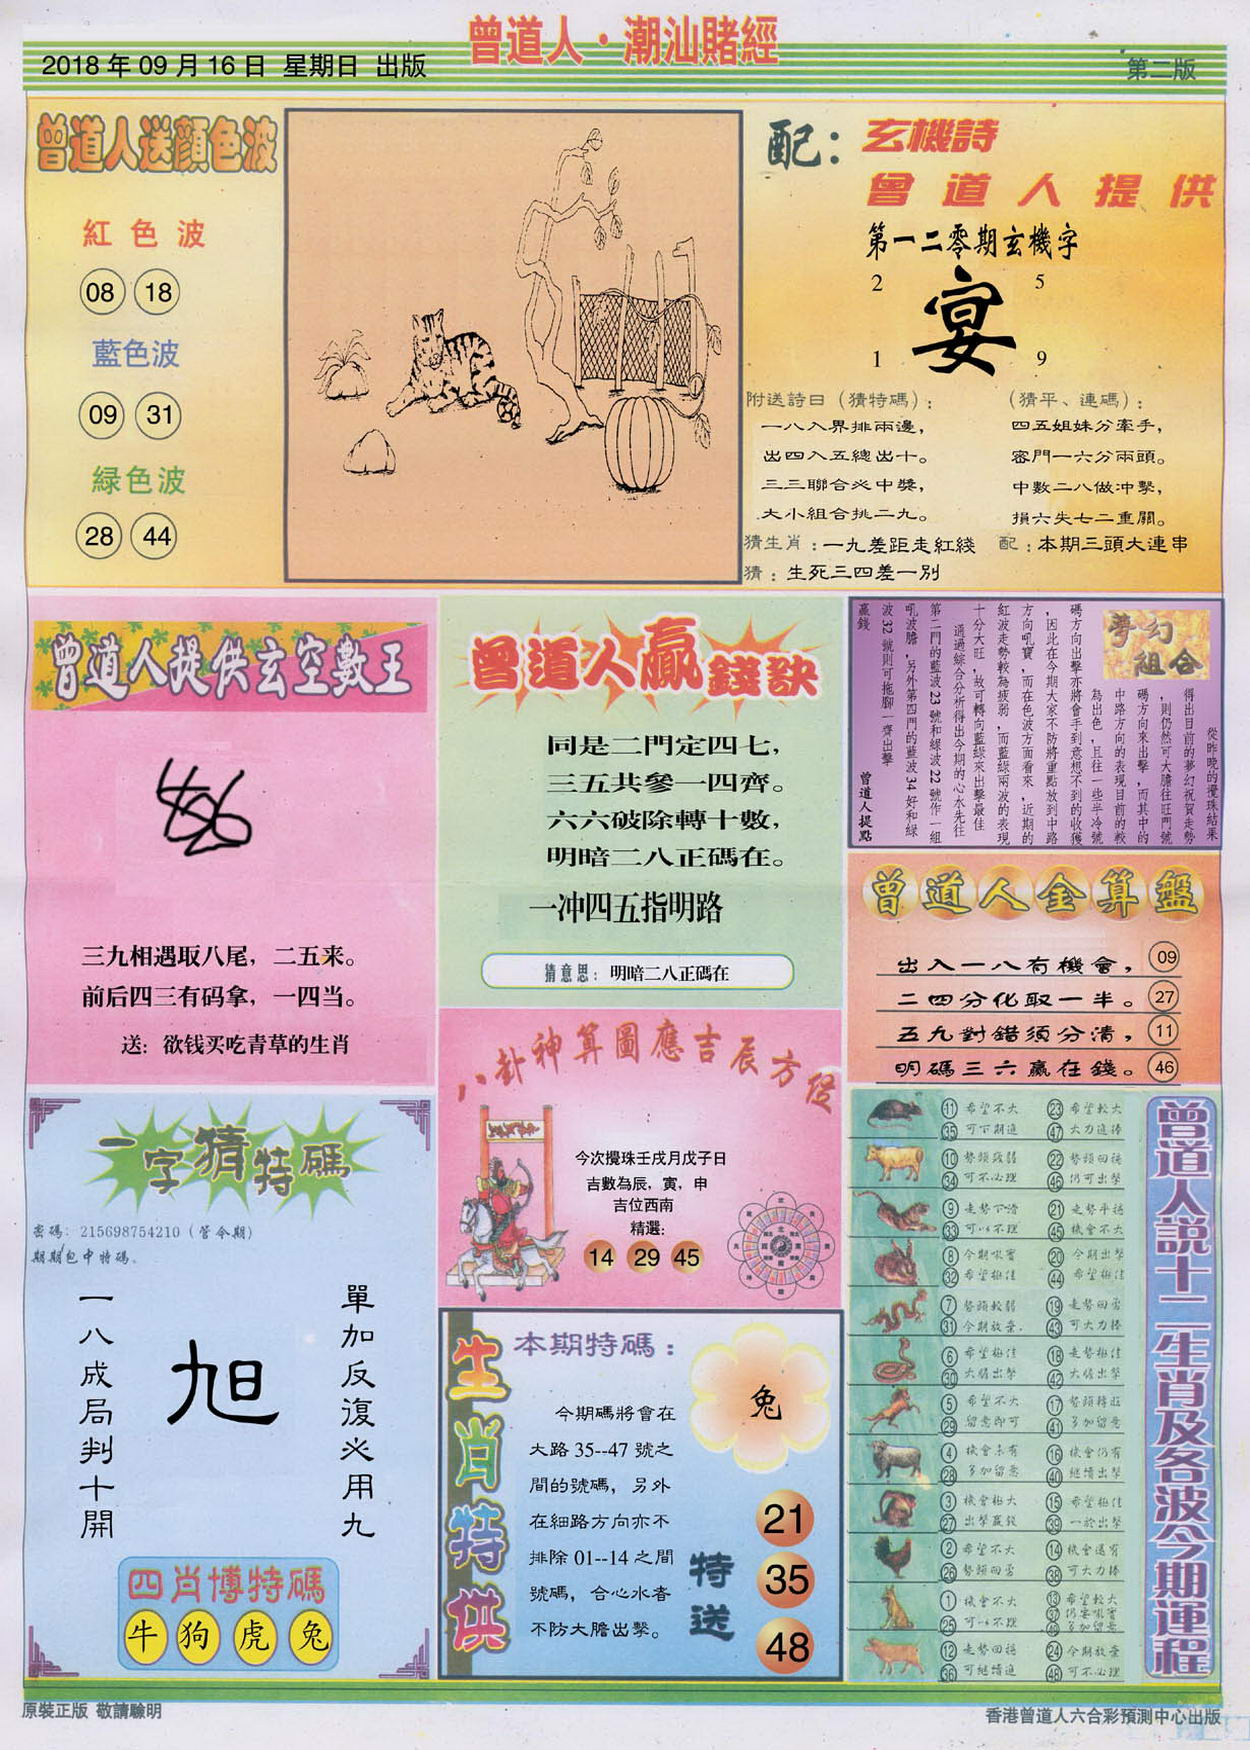 曾道人·潮汕賭經
2018年09月16日 星期日 出版
第二版
曾道人送顔色波
紅色波
08 18
藍色波
09 31
緑色波
28 44
配：
玄機詩
曾道人提供
第一二零期玄機字
2 5
宴
1 9
附送詩曰（猜特碼）：
一八入界排兩邊，
出四入五總出十。
三三聯合必中獎，
大小組合挑二九。
（猜平、連碼）：
四五姐妹分牽手，
密門一六分兩頭。
中數二八做冲擊，
損六失七二重關。
猜生肖：一九差距走紅綫
配：本期三頭大連串
猜：生死三四差一别
曾道人提供玄空數王
三九相遇取八尾，二五来。
前后四三有码拿，一四当。
送：欲钱买吃青草的生肖
曾道人贏錢訣
同是二門定四七，
三五共參一四齊。
六六破除轉十數，
明暗二八正碼在。
一冲四五指明路
猜意思：明暗二八正碼在
夢幻組合
從昨晚的攪珠結果
得出目前的夢幻祝賀走勢
，則仍然可大膽往旺門號
碼方向來出擊，而其中的
中路方向的表現目前的較
為出色，且往一些半冷號
碼方向出擊亦將會手到意想不到的收獲
，因此在今期大家不防將重點放到中路
方向吼寶，而在色波方面看來，近期的
紅波走勢較為疲弱，而藍緑兩波的表現
十分大旺，故可轉向藍緑來出擊最佳
通過綜合分析得出今期的心水先往
第二門的藍波23號和緑波22號作一組
吼波膽，另外第四門的藍波34好和緑
波32號則可拖腳一齊出擊
贏錢
曾道人提點
曾道人金算盤
出入一八有機會， 09
二四分化取一半。 27
五九對錯須分清， 11
明碼三六贏在錢。 46
八卦神算圖應吉辰方位
今次攪珠壬戌月戊子日
吉數為辰，寅，申
吉位西南
精選：
14 29 45
一字猜特碼
密碼：215698754210（管令期）
期期包中特碼。
單加反復必用九
旭
一八成局判十開
四肖博特碼
牛 狗 虎 兔
生肖特供
本期特碼：
兔
今期碼將會在
大路35--47號之
間的號碼，另外
在細路方向亦不
排除01--14之間
號碼，合心水者
不防大膽出擊。
特送
21
35
48
曾道人説十二生肖及各波今期運程
11 希望不大 23 希望較大
35 可下期進 47 大力進捧
10 勢頭疲弱 22 勢頭回穩
34 可不必理 46 仍可出擊
9 走勢下滑 21 走勢平穩
33 可以不理 45 機會不大
8 今期吼寶 20 今期出擊
32 希望極佳 44 希望極佳
7 勢頭較弱 19 走勢回勇
31 今期放棄. 43 可大力捧
6 希望極佳 18 走勢極佳
30 大膽出擊 42 大膽出擊
5 希望不大 17 勢頭轉旺
29 留意即可 41 多加留意
4 機會未有 16 機會仍有
28 多加留意 40 繼續出擊
3 機會極大 15 希望極佳
27 出擊贏錢 39 一於出擊
2 希望不大 14 機會還有
26 勢頭回勇 38 可大力捧
1 機會不大 13 希望較大
25 可以不理 37 仍容吼寶
49 多加留意
12 走勢回穩 24 今期放棄
36 可繼續進 48 可不必理
原裝正版 敬請驗明
香港曾道人六合彩預測中心出版